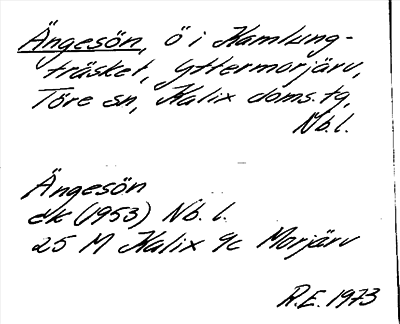 Ängesön, ö i Kamlung-
träsket, Yttermorjärv,
Töre sn, Kalix doms.tg,
Nb.l.
Ängesön
ek (1953) Nb. l.
25 M Kalix 9c Morjärv
R.E. 1973